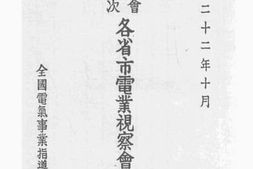 二十二年十月
會
次
各省市電業視察會
全國電氣事業指導